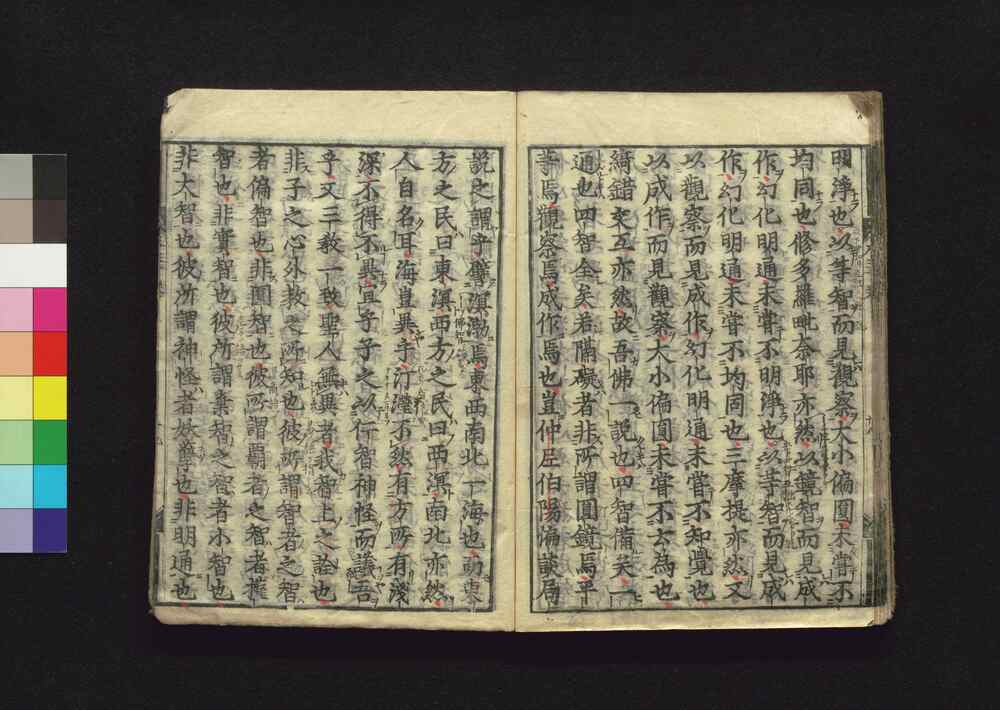 明淨也以等智而見觀察大小偏圓未嘗不
均同也修多羅毗奈耶亦然以鏡智而見成
作幻化明通未嘗不明淨也以等智而見成
作幻化明通未嘗不均同也三摩提亦然又
以觀察而見成作幻化明通未嘗不知覺也
以成作而見觀察大小偏圓未嘗不云為也
綺錯交互亦然故吾佛一説也四智備矣一
通也四智全矣若隔礙者非所謂圓鏡焉平
等焉觀察焉成作焉也豈仲尼伯陽偏談局
説之謂乎譬溟渤焉東西南北一海也而東
方之民曰東溟西方之民曰西溟南北亦然
人自名耳海豈異乎汀瀅不然有方所有淺
深不得不異宜乎子之以行智神怪而議吾
乎又三教一致聖人無異者我智上之詮也
非子之心外教之所知也彼所謂智者之智
者偏智也非圓智也彼所謂覇者之智者權
智也非實智也彼所謂棄智之智者小智也
非大智也彼所謂神怪者妖孽也非明通也